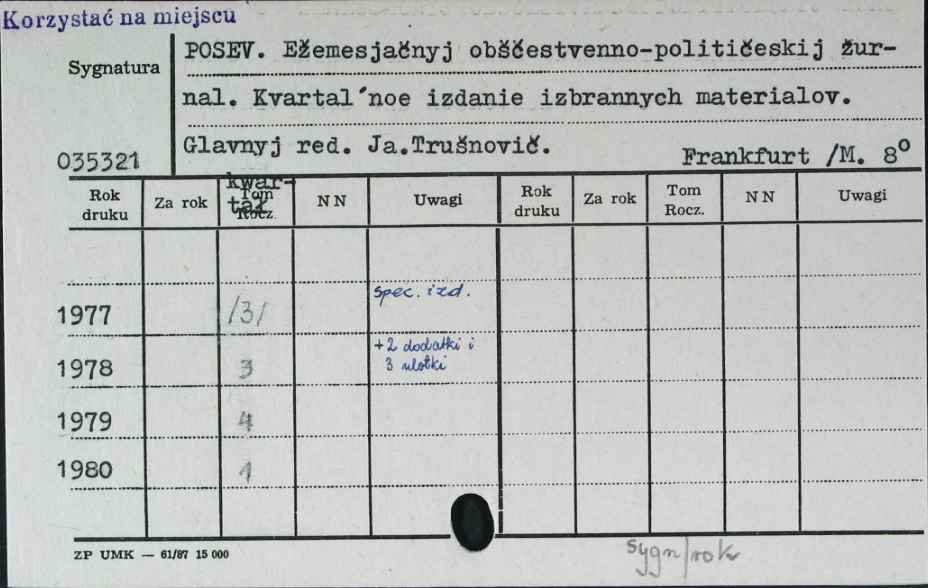 Korzystać na miejscu
POSEV. Ežemesjačnyj obščestvenno-političeskij žur-
Sygnatura
nal. Kvartal´noe izdanie izbrannych materialov.
Glavnyj red. Ja.Trušnovič.
035321
Frankfurt /M. 8º
Rok druku Za rok Tom Rocz. kwar-tał NN Uwagi Rok druku Za rok Tom Rocz. NN Uwagi
spec. izd.
1977 /3/
+2 dodatki i
1978 3 3 ulotki
1979 4
1980 1
ZP UMK — 61/87 15 000
sygn/rok